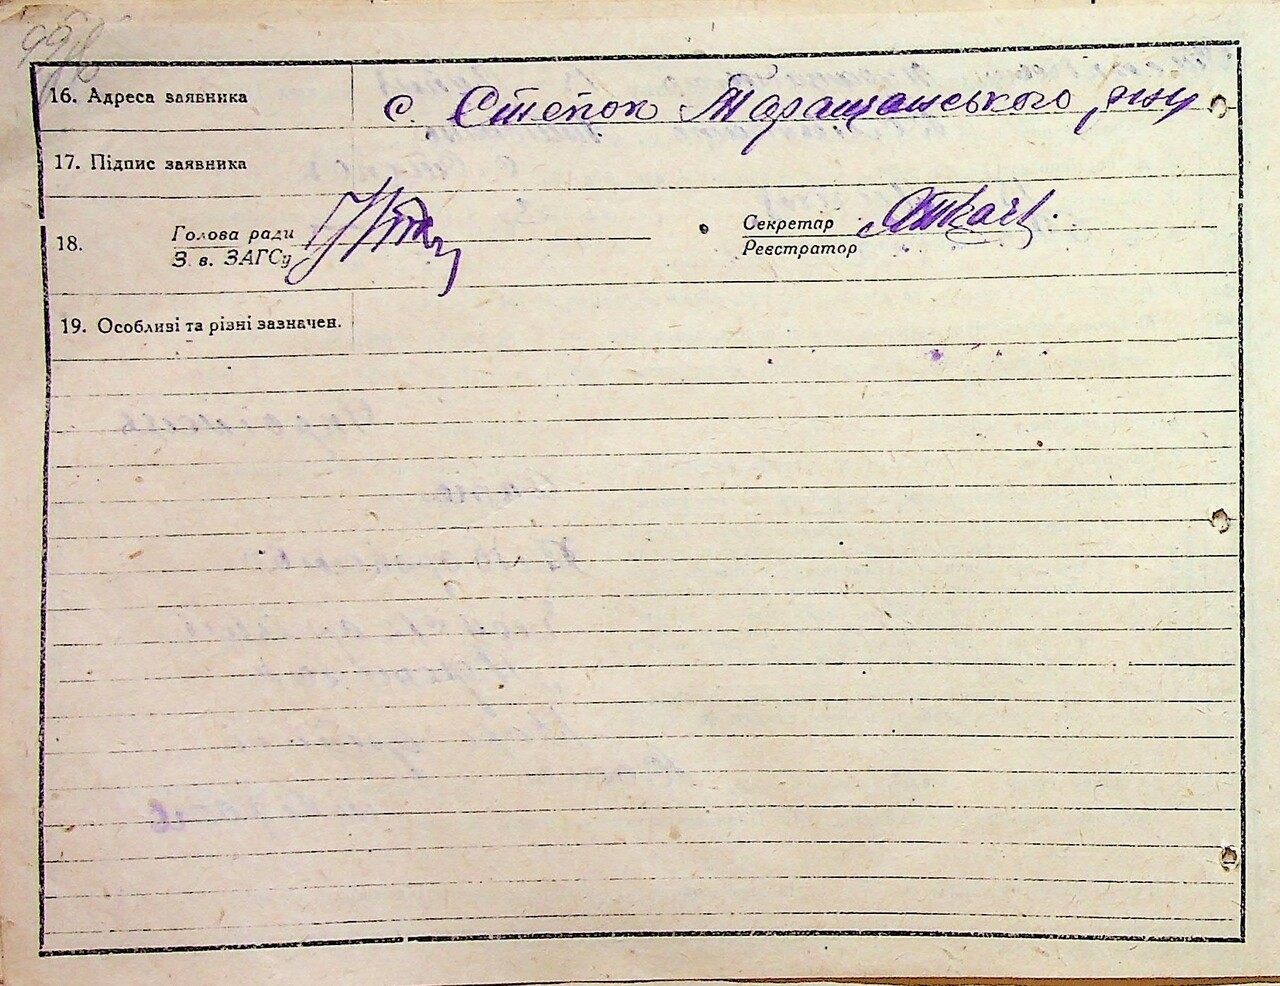 16. Адреса заявника с. Степок Таращанського р-ну
17. Підпис заявника
18. Голова ради
З. в. ЗАГСу
Секретар Ткач
Реєстратор
19. Особливі та різні зазначен.